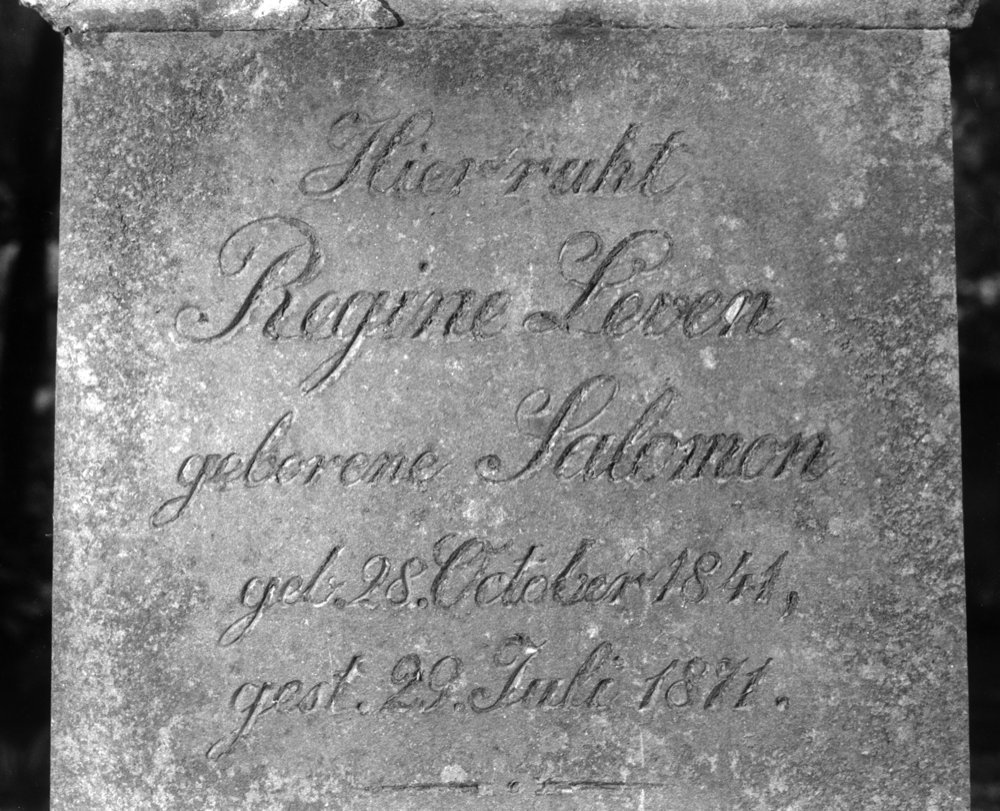 Hier ruht
Regine Leven
geborene Salomon
geb. 28. October 1841,
gest. 29. Juli 1871.